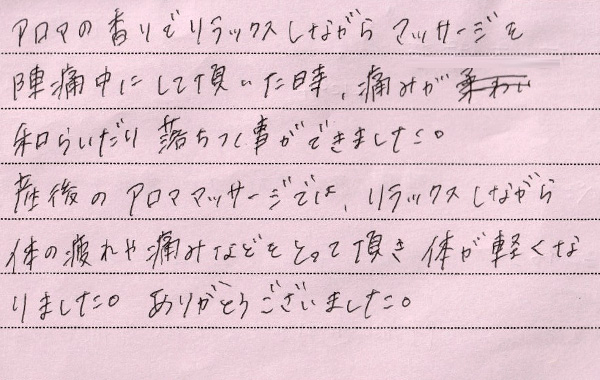 アロマの香りでリラックスしながら マッサージを
陣痛中にして頂いた時、痛みが
和らいだり 落ちつく事ができました。
産後の アロママッサージでは、リラックスしながら
体の疲れや痛みなどをとって頂き 体が軽くな
りました。 ありがとうございました。